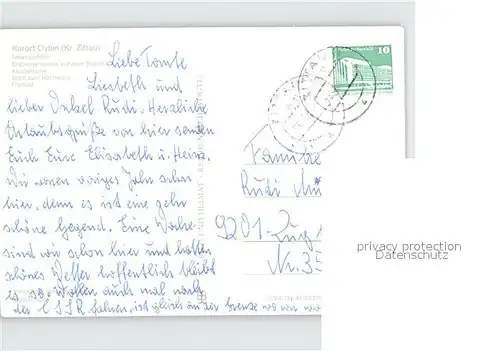 Kurort Oybin (Kr. Zittau)
Liebe Tante
Liesbeth und
lieber Onkel Rudi. Herzliche
Urlaubsgrüße von hier senden
Euch Eure Elisabeth u. Heinz.
Wir waren voriges Jahr schon
hier, denn es ist eine sehr
schöne Gegend. Eine Woche
sind wir schon hier und hatten
schönes Wetter hoffentlich bleibt
es so. Wollen auch mal nach
der CSSR fahren, ist gleich an der Grenze
10
Familie
Rudi
9201
Nr. 35
privacy protection
Datenschutz